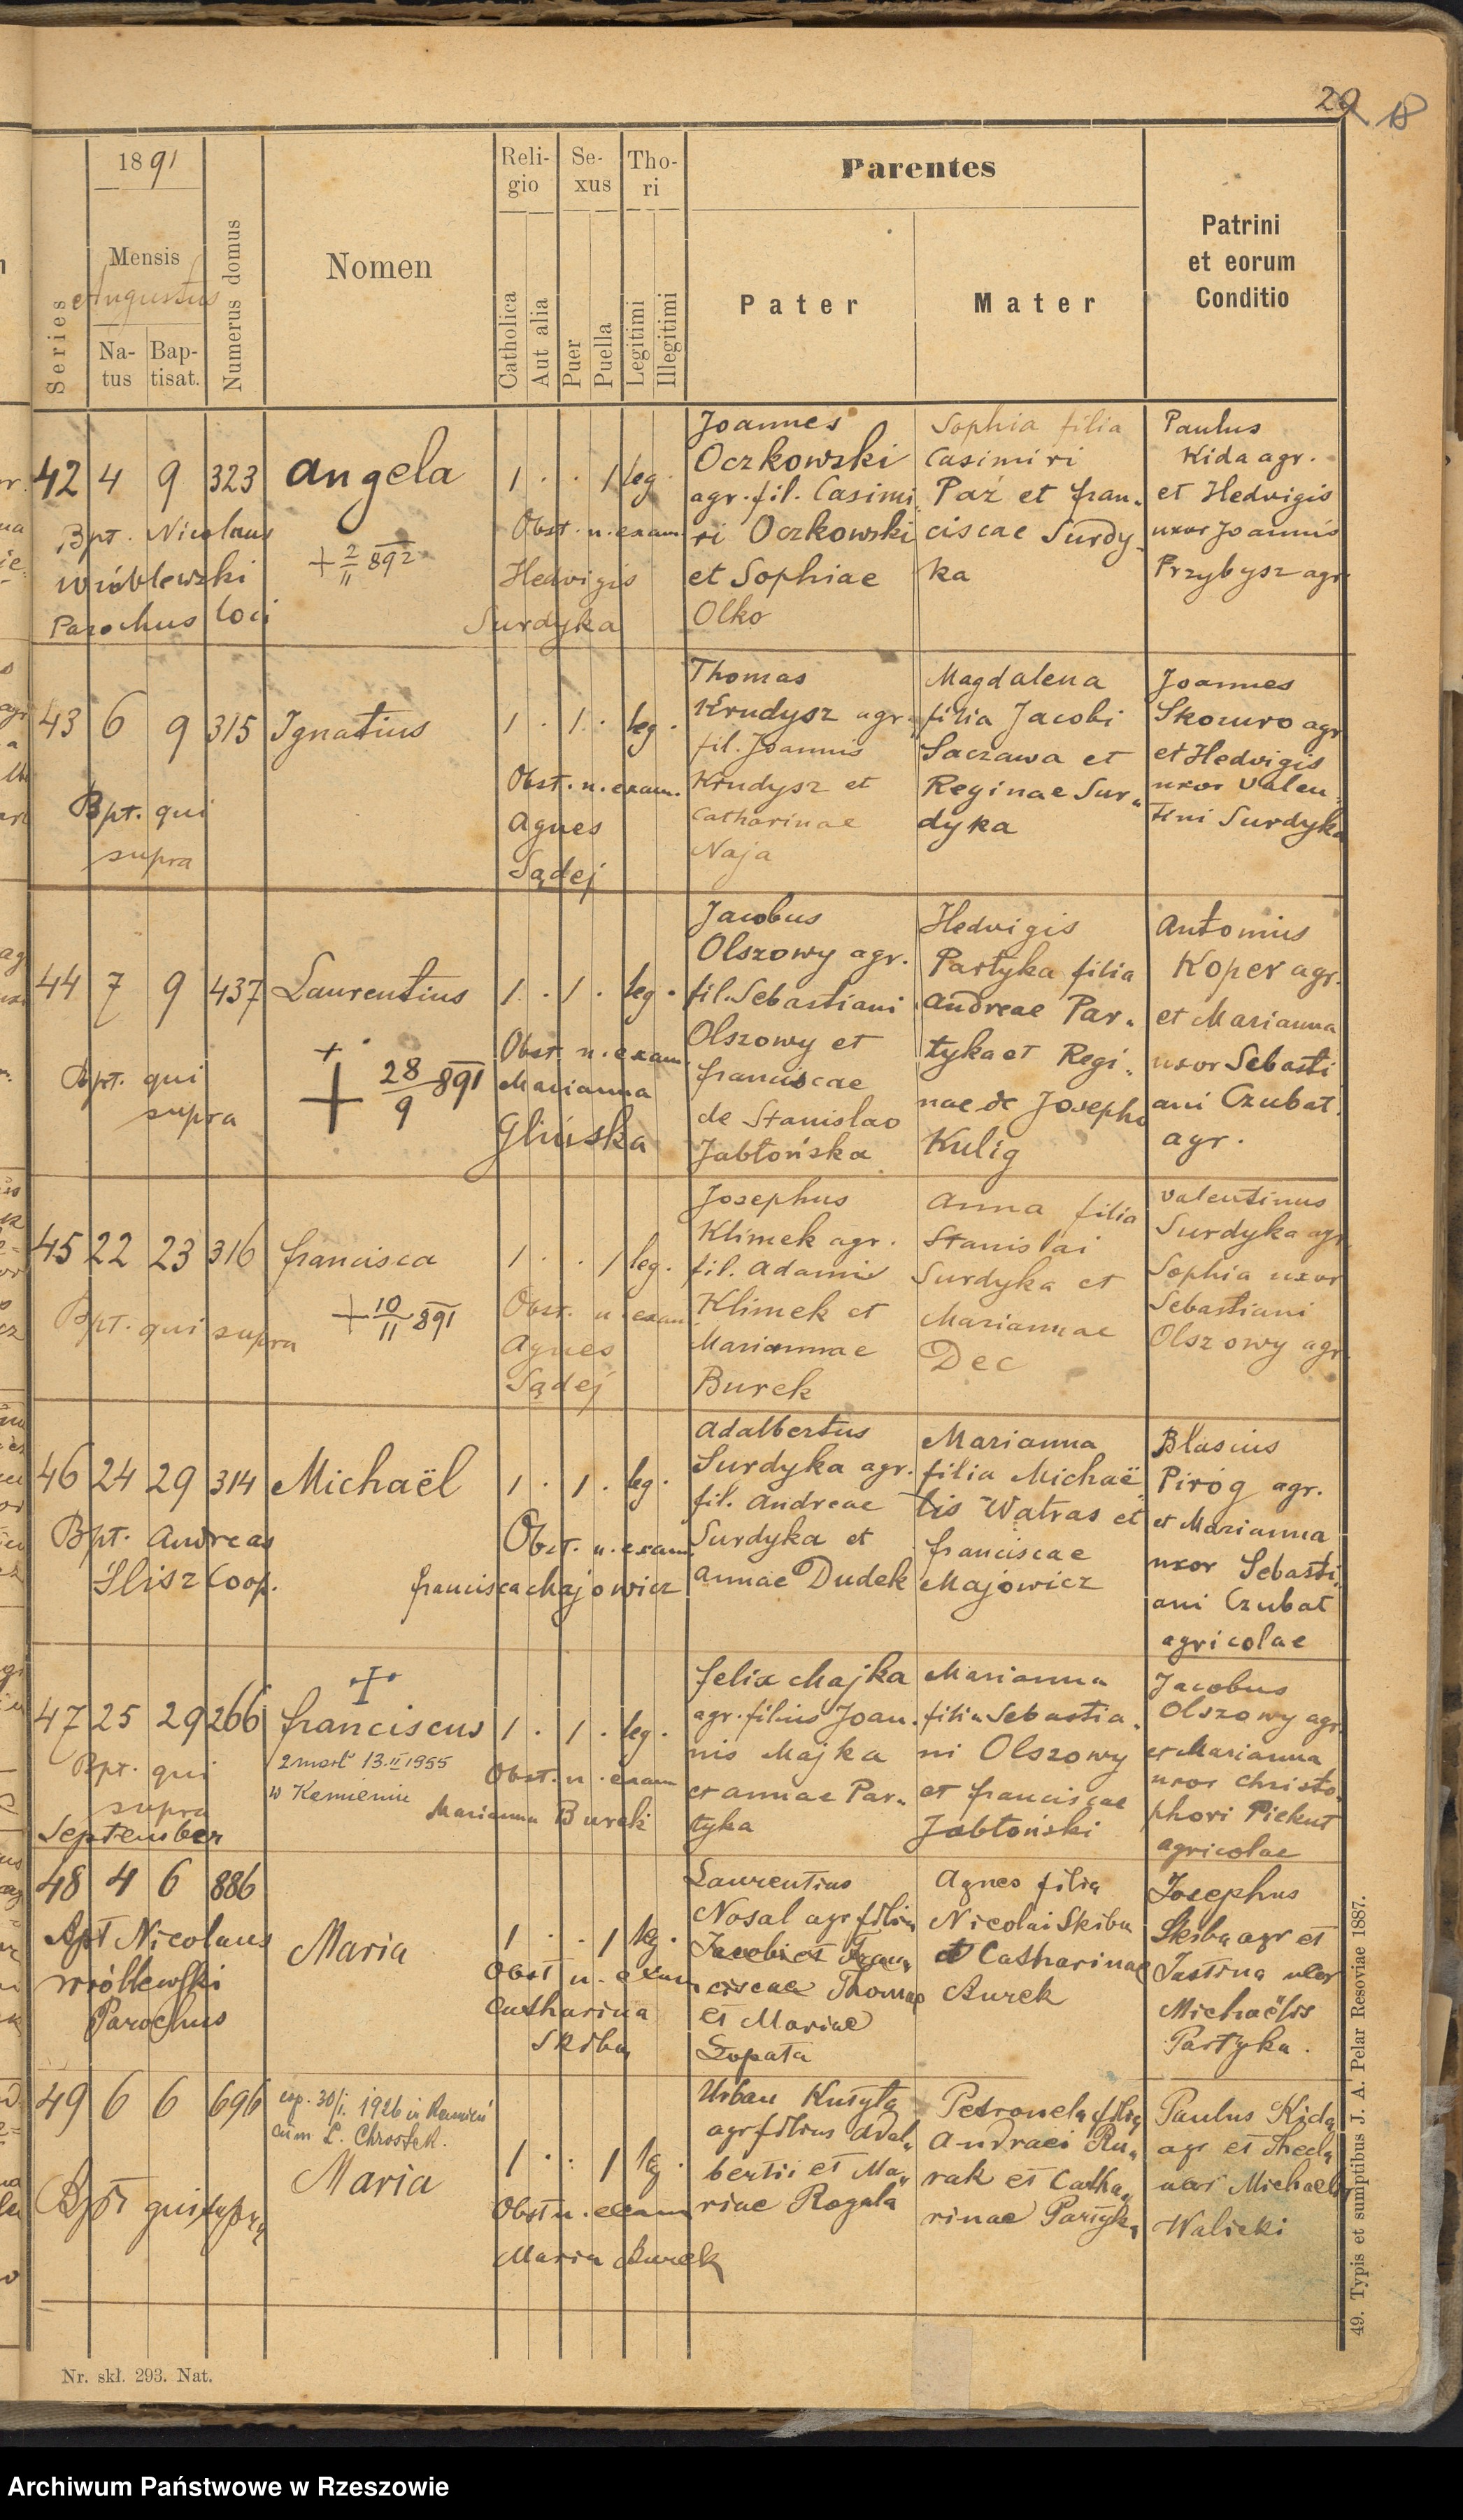 29 18
1891
Mensis
Augustus
Series
Na-
tus
Bap-
tisat.
Numerus domus
Nomen
Reli-
gio
Catholica
Aut alia
Se-
xus
Puer
Puella
Tho-
ri
Legitimi
Illegitimi
Parentes
Pater
Mater
Patrini
et eorum
Conditio
42 4 9 323 Angela 1 . . 1 leg.
Bpt. Nicolaus
Wróblewski
Parochus loci
+ 2/11 892
Obst. n. exam.
Hedvigis
Surdyka
Joannes
Oczkowski
agr. fil. Casimi
ri Oczkowski
et Sophiae
Olko
Sophia filia
Casimiri
Paź et Fran-
ciscae Surdy-
ka
Paulus
Kida agr.
et Hedvigis
uxor Joannis
Przybysz agr.
43 6 9 315 Ignatius 1 . 1 . leg.
Bpt. qui
supra
Obst. n. exam.
Agnes
Sądej
Thomas
Krudysz agr.
fil. Joannis
Krudysz et
Catharinae
Naja
Magdalena
filia Jacobi
Saczawa et
Reginae Sur-
dyka
Joannes
Skomro agr
et Hedvigis
uxor Valen-
tini Surdyka
44 7 9 437 Laurentius 1 . 1 . leg.
Bpt. qui
supra
+ 28/9 891
Obst. n. exam.
Marianna
Glinska
Jacobus
Olszowy agr.
fil. Sebastiani
Olszowy et
Franciscae
de Stanislao
Jabłońska
Hedvigis
Partyka filia
Andreae Par-
tyka et Regi-
nae de Josepho
Kulig
Antonius
Koper agr.
et Marianna
uxor Sebasti
ani Czubat
agr.
45 22 23 316 Francisca 1 . . 1 leg.
Bpt. qui supra
+ 10/11 891
Obst. n. exam
Agnes
Sądej
Josephus
Klimek agr.
fil. Adami
Klimek et
Mariannae
Burek
Anna filia
Stanislai
Surdyka et
Mariannae
Dec
Valentinus
Surdyka agr
Sophia uxor
Sebastiani
Olszowy agr
46 24 29 314 Michaël 1 . 1 . leg.
Bpt. Andreas
Slisz Coop.
Obst. n. exam.
Francisca Majowicz
Adalbertus
Surdyka agr.
fil. Andreae
Surdyka et
Annae Dudek
Marianna
filia Michaë
lis Watras et
Franciscae
Majowicz
Blasius
Piróg agr.
et Marianna
uxor Sebasti
ani Czubat
agricolae
47 25 29 266 Franciscus 1 . 1 . leg.
Bpt. qui
supra
zmarł 13.II 1955
w Kamieniu
Obst. n. exam
Marianna Burek
Felix Majka
agr. filius Joan-
nis Majka
et Annae Par-
tyka
Marianna
filia Sebastia-
ni Olszowy
et Franciscae
Jabłoński
Jacobus
Olszowy agr.
et Marianna
uxor Christo-
phori Piekut
agricolae
September
48 4 6 886 Maria 1 . . 1 leg.
Bpt Nicolaus
Wróblewski
Parochus
Obst n. exam
Catharina
Skiba
Laurentius
Nosal agr filius
Jacobi et Fran-
ciscae Thomae
et Mariae
Łopata
Agnes filia
Nicolai Skiba
et Catharinae
Burek
Josephus
Skiba agr et
Justina uxor
Michaëlis
Partyka.
49 6 6 696 Maria 1 . . 1 leg.
cop. 30/I. 1926 in Kamień
cum L. Chrostek.
Bpt qui supra
Obst n. exam
Maria Burek
Urban Kusyła
agr filius Adal-
berti et Ma-
riae Rogala
Petronela filia
Andraei Ru-
rak et Catha-
rinae Partyka
Paulus Kida
agr et Thecla
uxor Michaelis
Walicki
Nr. skł. 293. Nat.
49. Typis et sumptibus J. A. Pelar Resoviae 1887.
Archiwum Państwowe w Rzeszowie